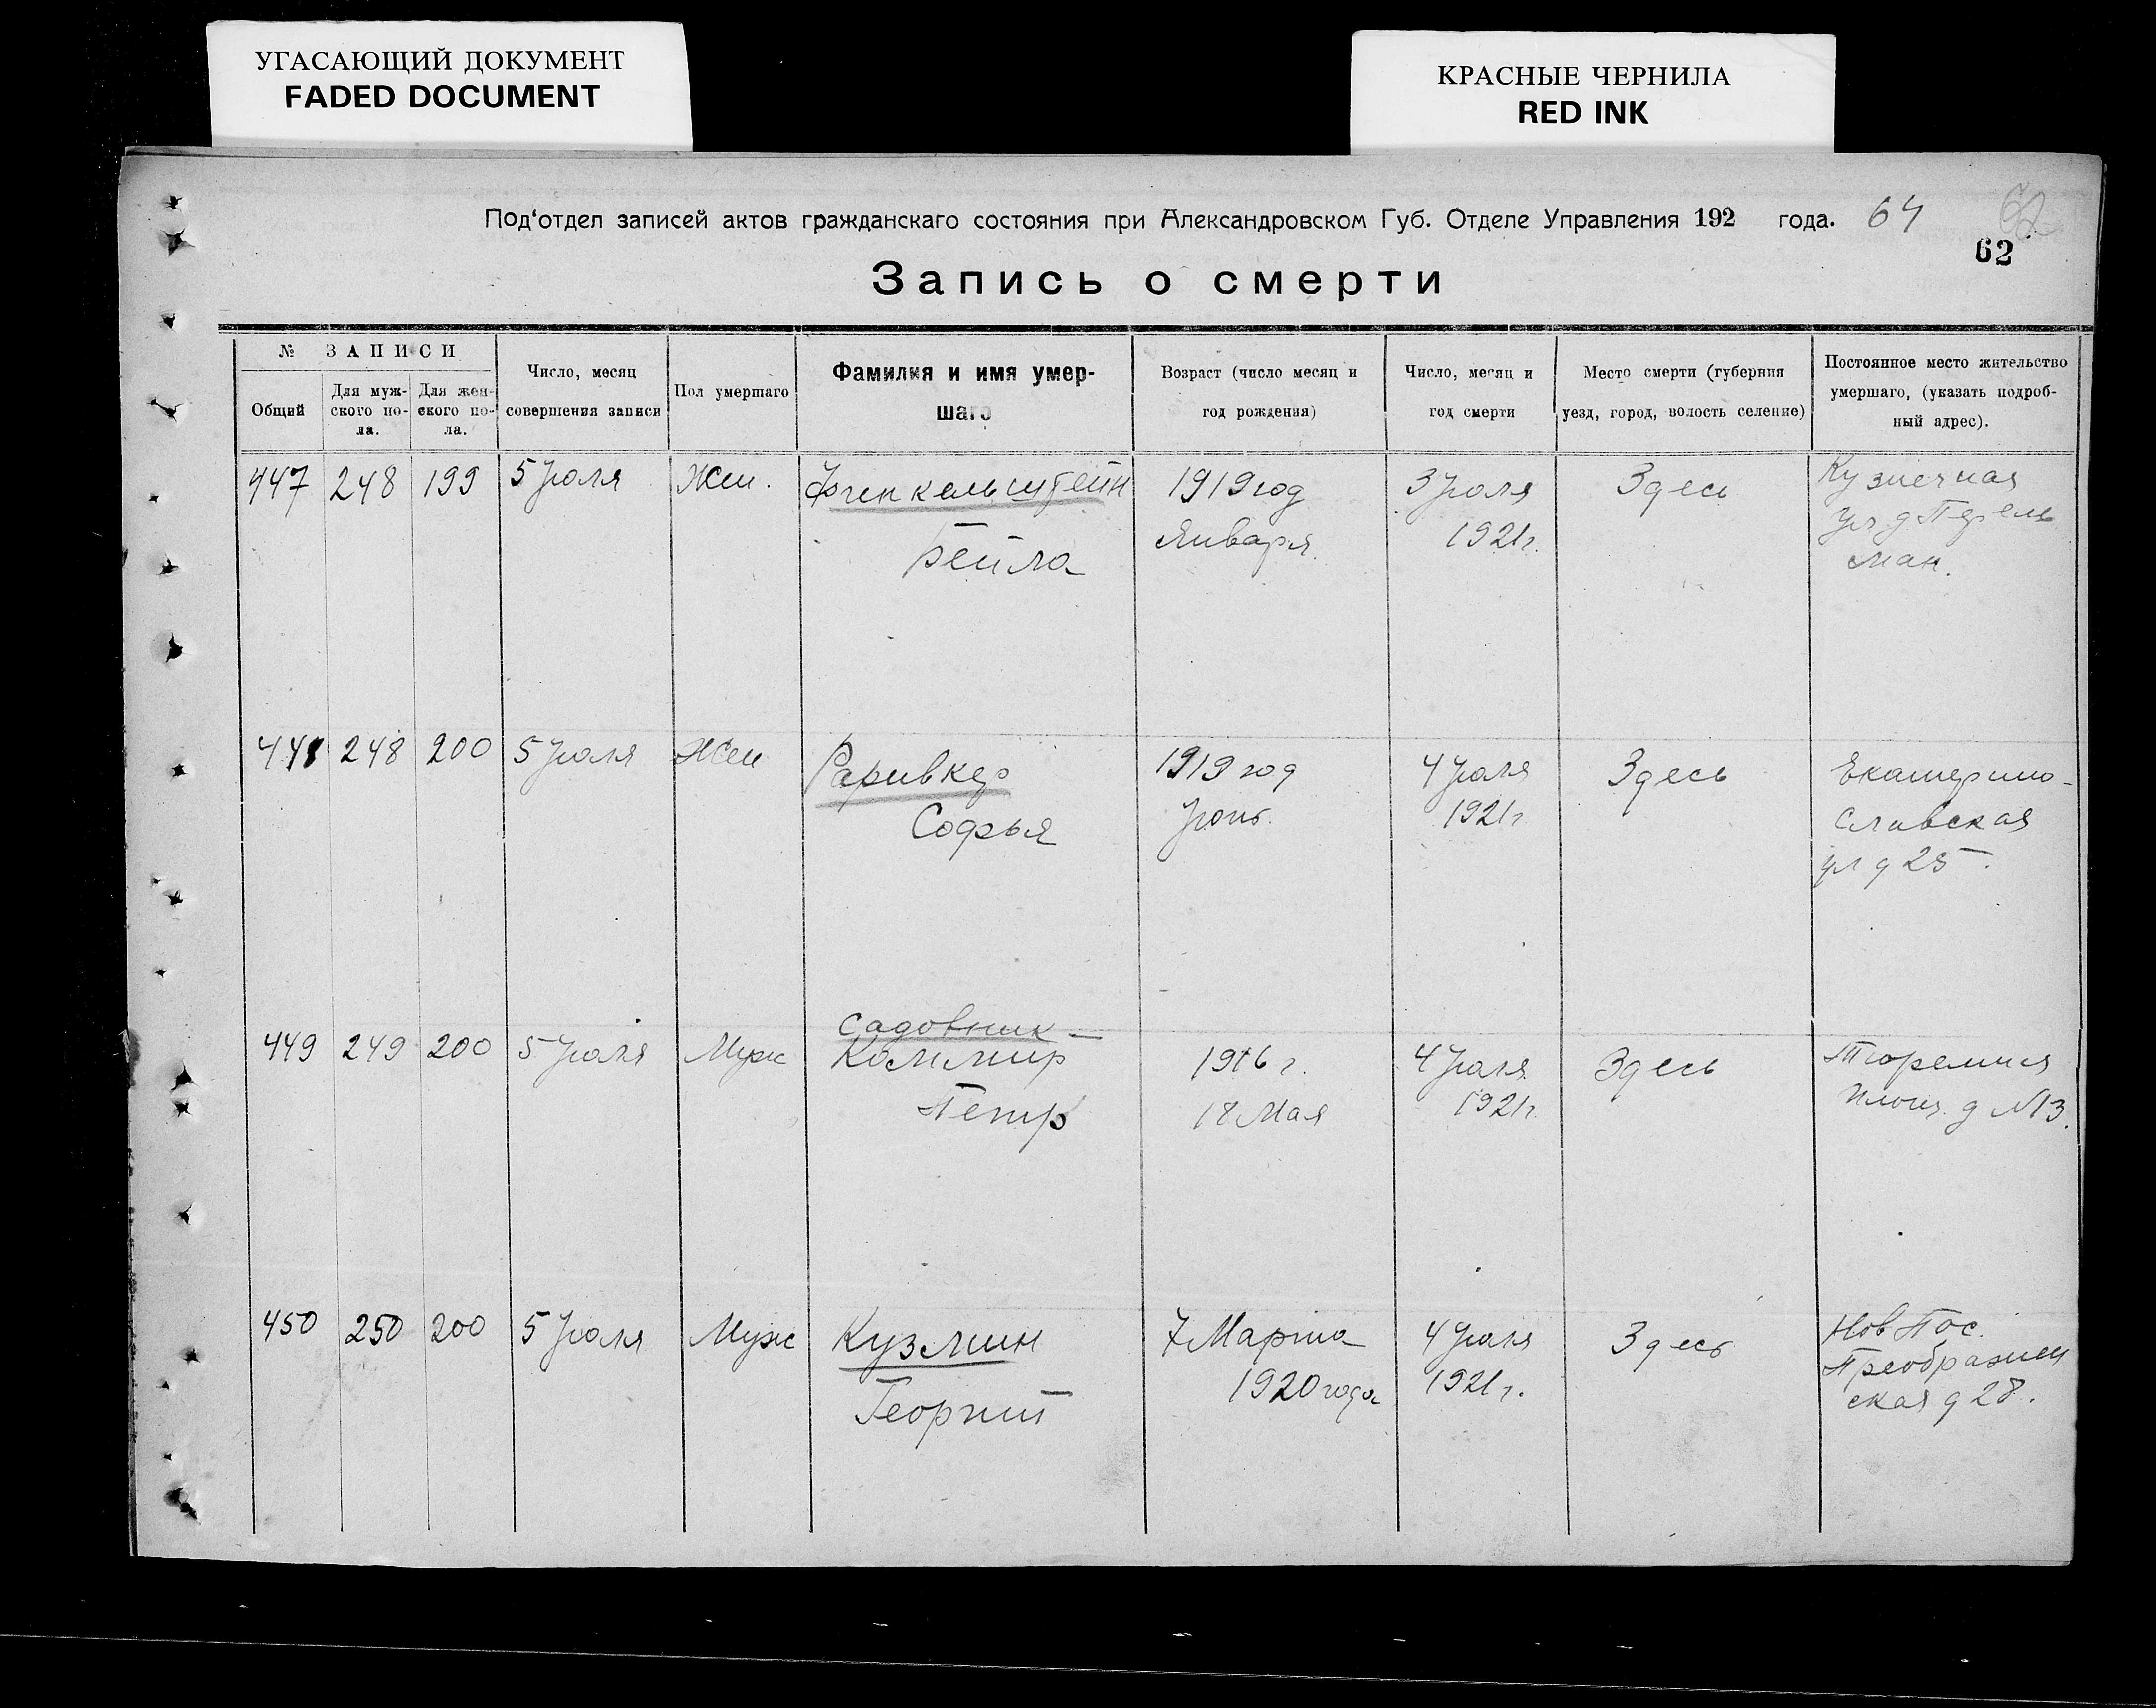 УГАСАЮЩИЙ ДОКУМЕНТ
FADED DOCUMENT
КРАСНЫЕ ЧЕРНИЛА
RED INK
Под'отдел записей актов гражданскаго состояния при Александровском Губ. Отделе Управления 192 года. 64
62
Запись о смерти
№ ЗАПИСИ
Общий
Для муж-
ского по-
ла.
Для жен-
ского по-
ла.
Число, месяц
совершения записи
Пол умершаго
Фамилия и имя умер-
шаго
Возраст (число месяц и
год рождения)
Число, месяц и
год смерти
Место смерти (губерния
уезд, город, волость селение)
Постоянное место жительство
умершаго, (указать подроб-
ный адрес).
447 248 199 5 Июля Жен.
Бейла
1919 год
Января
3 Июля
1921 г.
Здесь
Кузнечная
ул. д Перель
ман.
448 248 200 5 Июля Жен
Ривкер
Софья
1919 год
Июнь.
4 Июля
1921 г
Здесь
Екатерино-
славская
ул д 25.
449 249 200 5 Июля Муж
Садовник-
Казимир
Петр
1916 г.
18 Мая
4 Июля
1921 г.
Здесь
Тюремная
площ. д №13.
450 250 200 5 Июля Муж
Кузмин
Георгий
7 Марта
1920 года
4 Июля
1921 г.
Здесь
Нов Пос.
Преображен
ская д 28.